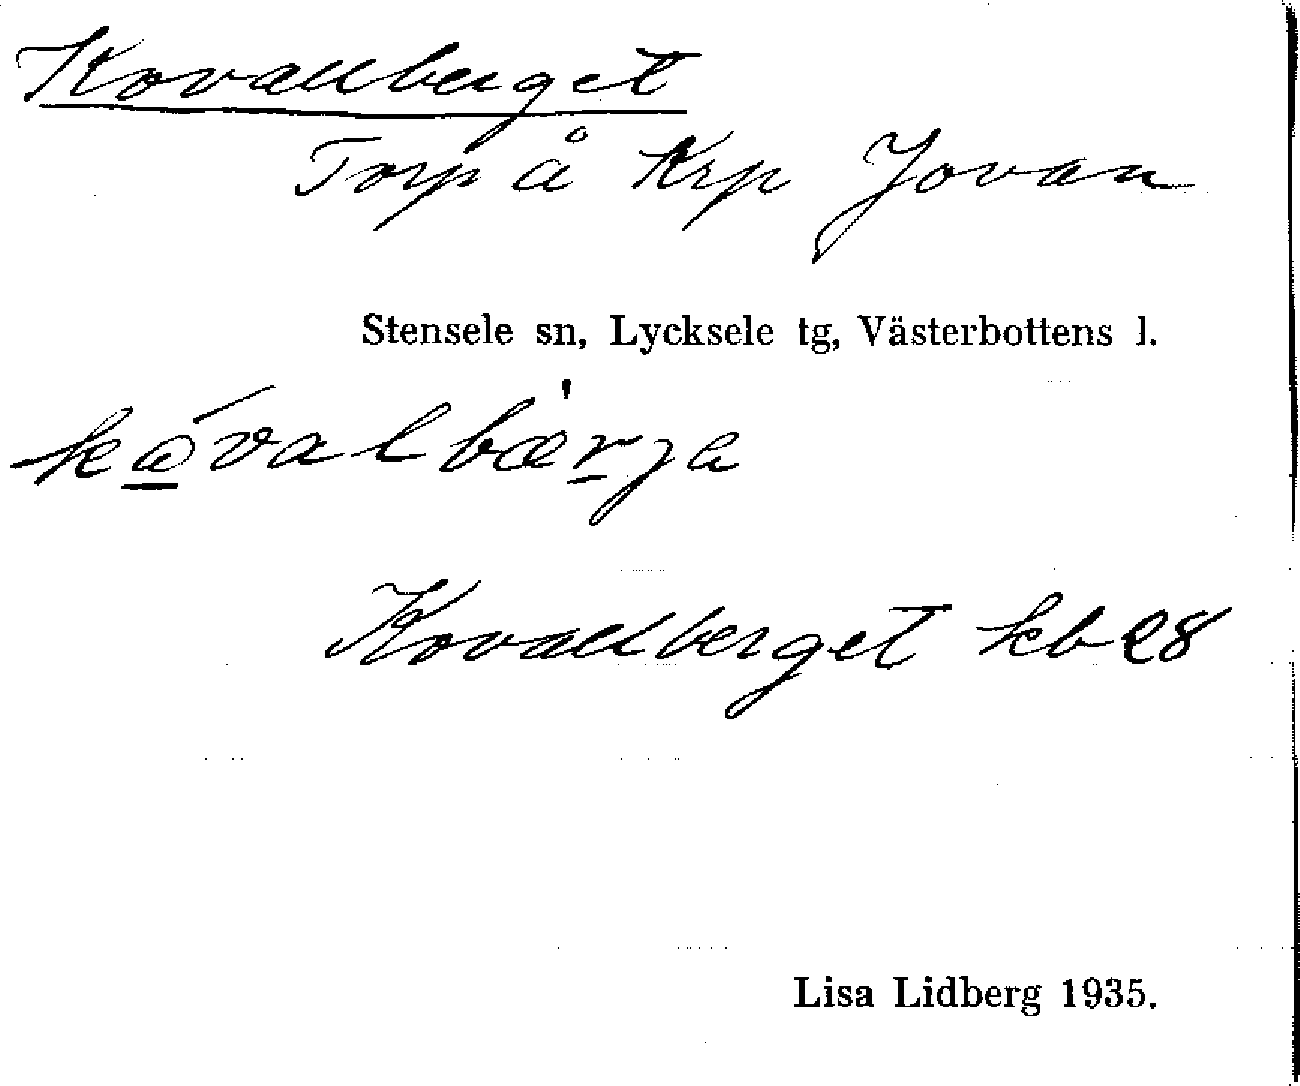 Kovallberget
Torp å Krp Jovan
Stensele sn, Lycksele tg, Västerbottens l.
kǻvalbær̠ja
Kovallberget kb 28
Lisa Lidberg 1935.